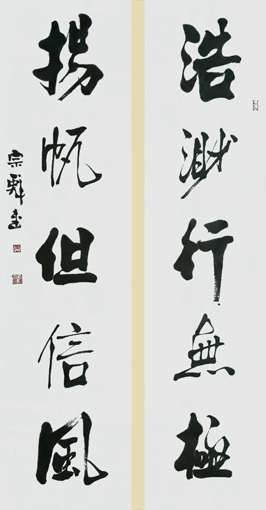 浩渺行無極
揚帆但信風
宗